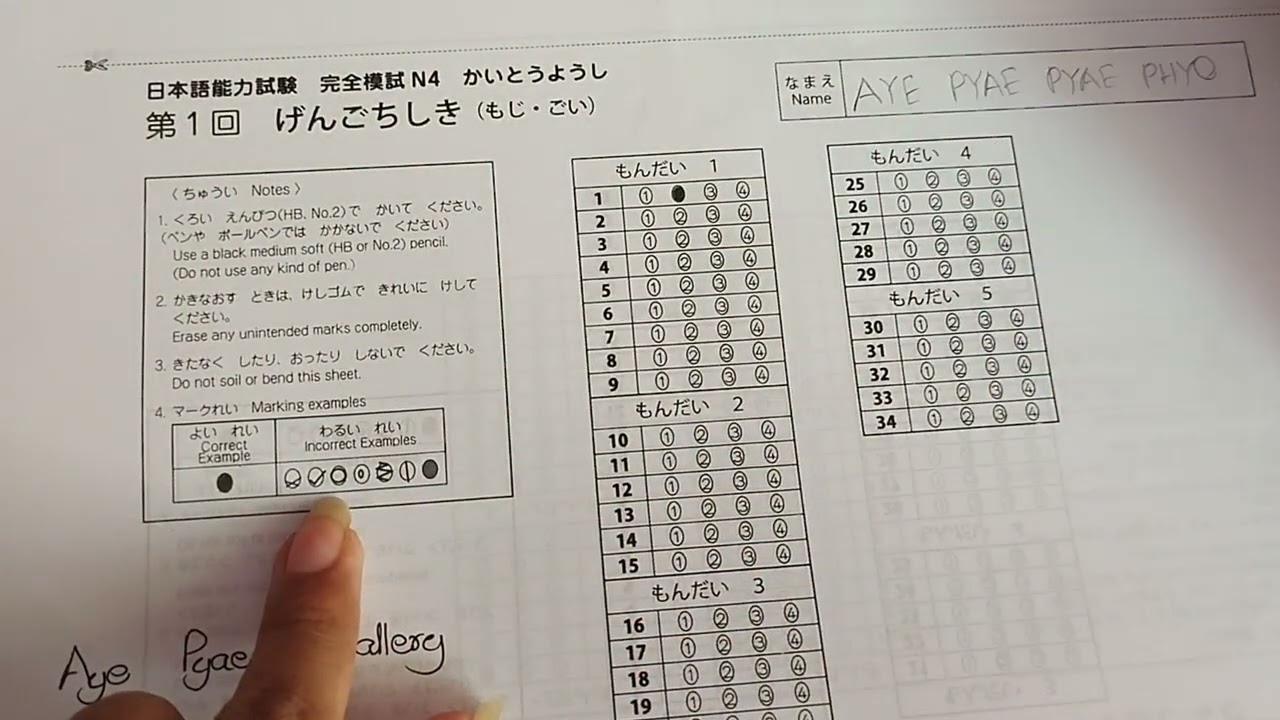 日本語能力試験 完全模試 N4 かいとうようし
第1回 げんごちしき（もじ・ごい）
なまえ
Name
AYE PYAE PYAE PHYO
〈ちゅうい Notes〉
1. くろい えんぴつ(HB、No.2)で かいて ください。
(ペンや ボールペンでは かかないで ください)
Use a black medium soft (HB or No.2) pencil.
(Do not use any kind of pen.)
2. かきなおす ときは、けしゴムで きれいに けして
ください。
Erase any unintended marks completely.
3. きたなく したり、おったり しないで ください。
Do not soil or bend this sheet.
4. マークれい Marking examples
よい れい
Correct
Example
わるい れい
Incorrect Examples
もんだい 1
1 ① ③ ④
2 ① ② ③ ④
3 ① ② ③ ④
4 ① ② ③ ④
5 ① ② ③ ④
6 ① ② ③ ④
7 ① ② ③ ④
8 ① ② ③ ④
9 ① ② ③ ④
もんだい 2
10 ① ② ③ ④
11 ① ② ③ ④
12 ① ② ③ ④
13 ① ② ③ ④
14 ① ② ③ ④
15 ① ② ③ ④
もんだい 3
16 ① ② ③ ④
17 ① ② ③ ④
18 ① ② ③ ④
19 ① ② ③ ④
もんだい 4
25 ① ② ③ ④
26 ① ② ③ ④
27 ① ② ③ ④
28 ① ② ③ ④
29 ① ② ③ ④
もんだい 5
30 ① ② ③ ④
31 ① ② ③ ④
32 ① ② ③ ④
33 ① ② ③ ④
34 ① ② ③ ④
Aye Pyae allery